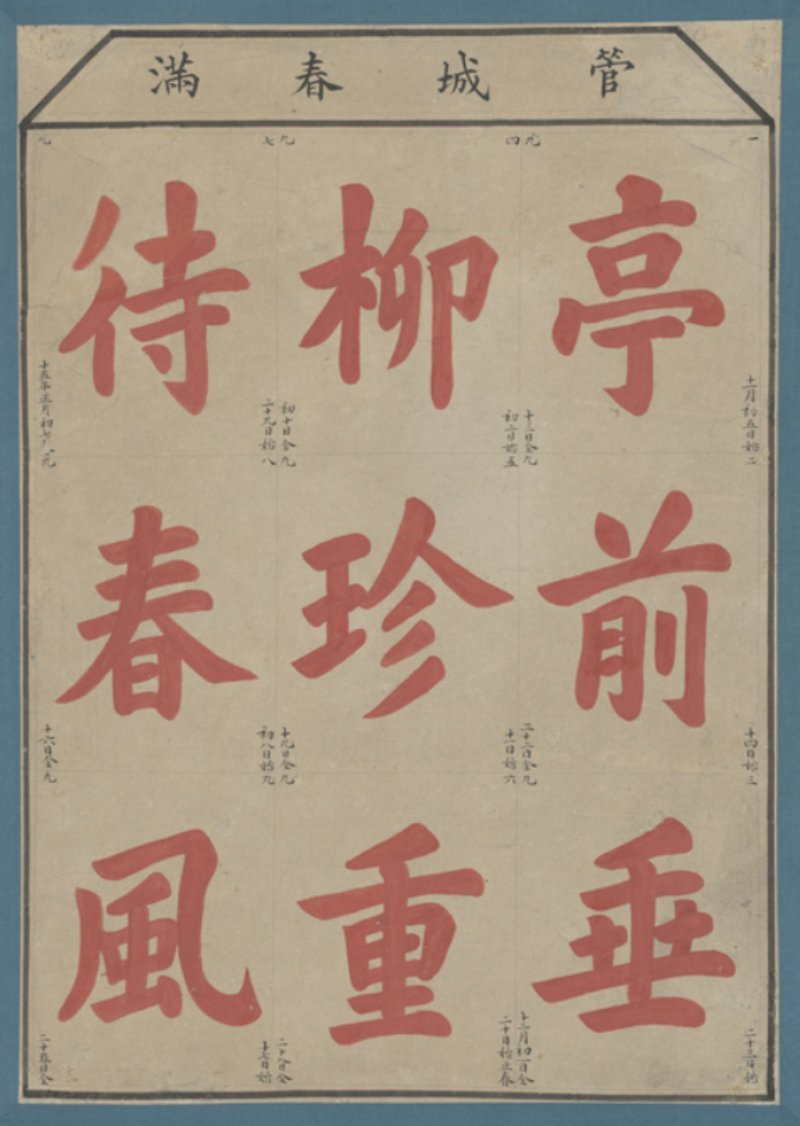 管城春滿
一
亭
十一月初五日始二
前
十四日始三
垂
二十三日始
九
四
十三日全九
初二日始五
二十二日全九
十一日始六
十二月初一日全
二十日始立春
柳
珍
重
九
七
初十日全九
二十九日始八
十九日全九
初八日始九
二十八日全
十七日始
待
春
風
九
十五年正月初七
九
十六日全九
二十五日全